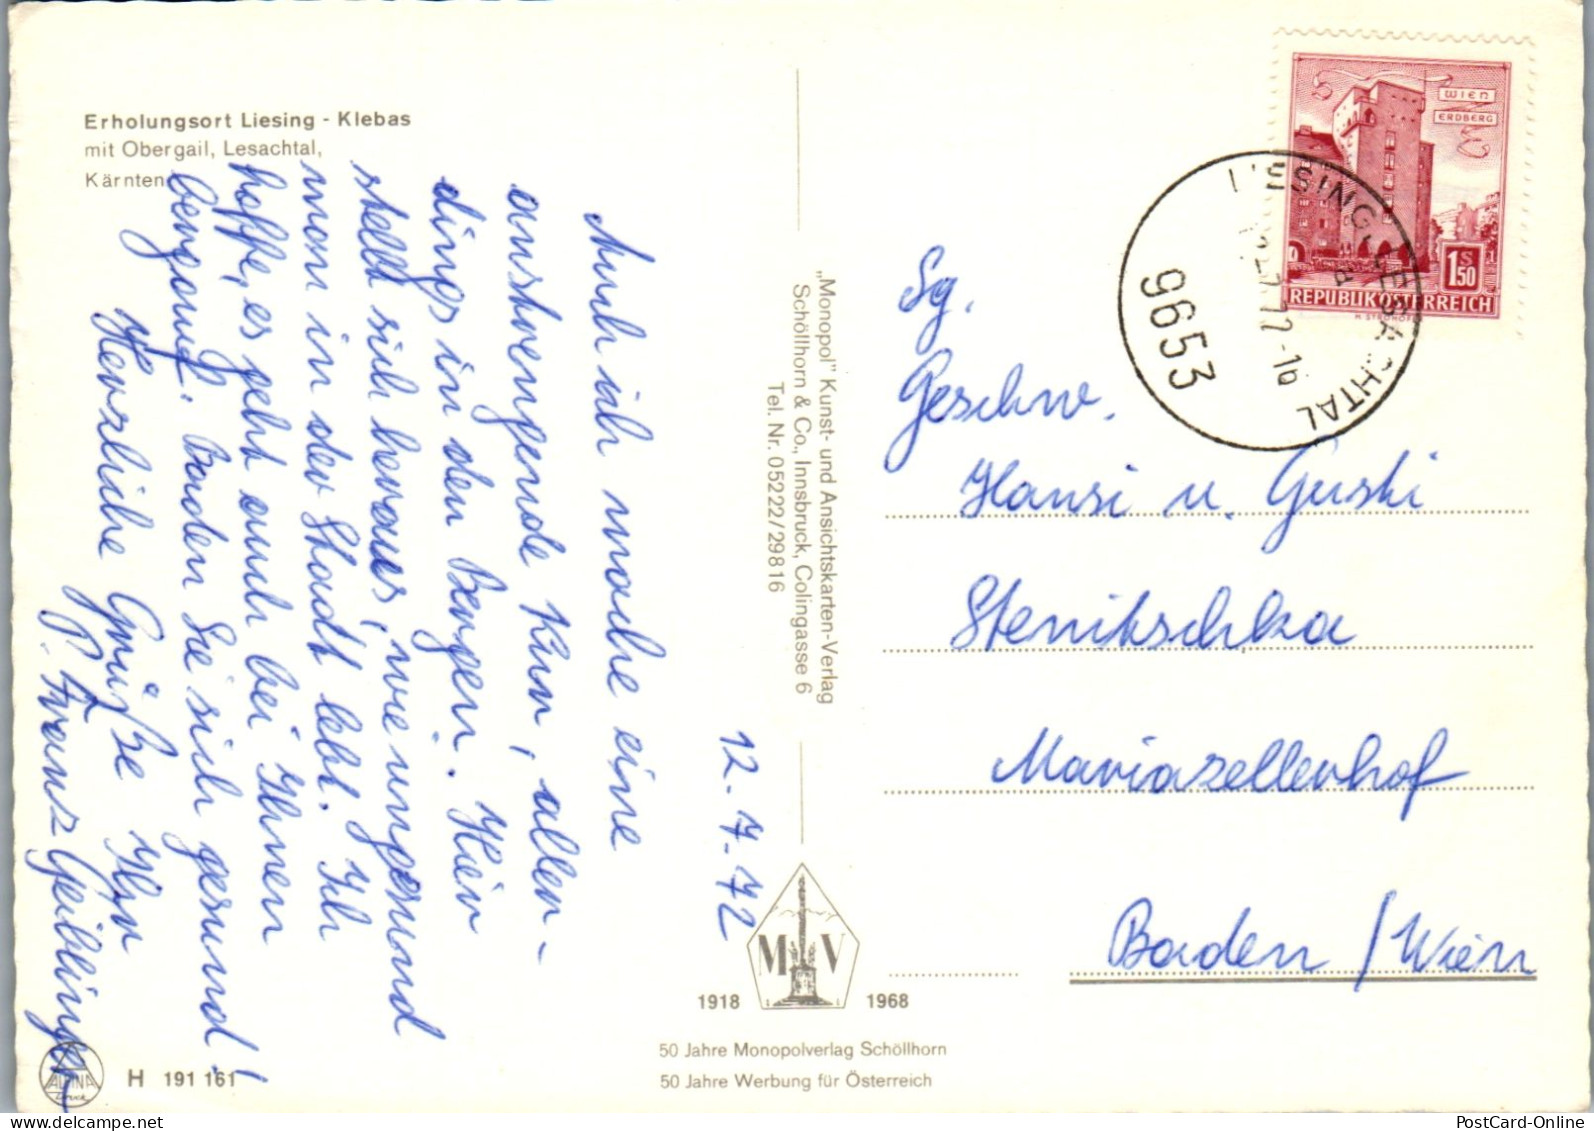 Erholungsort Liesing - Klebas
mit Obergail, Lesachtal,
Kärnten
12.7.72
Auch ich mache eine
anstrengende Kur, aller-
dings in den Bergen. Hier
stellt sich heraus, wie ungesund
man in der Stadt lebt. Ich
hoffe, es geht auch bei Ihnen
bergauf. Baden Sie sich gesund!
Herzliche Grüße Ihr
P. Franz Geiblinger
„Monopol" Kunst- und Ansichtskarten-Verlag
Schöllhorn & Co., Innsbruck, Colingasse 6
Tel. Nr. 05222/29816
M V
1918 1968
50 Jahre Monopolverlag Schöllhorn
50 Jahre Werbung für Österreich
ALPINA
Druck
H 191 161
WIEN
ERDBERG
S
1.50
REPUBLIK ÖSTERREICH
LIESING, LESACHTAL
9653
Sg.
Geschw.
Hansi u. Gusti
Stenitschka
Mariazellerhof
Baden / Wien
PostCard-Online